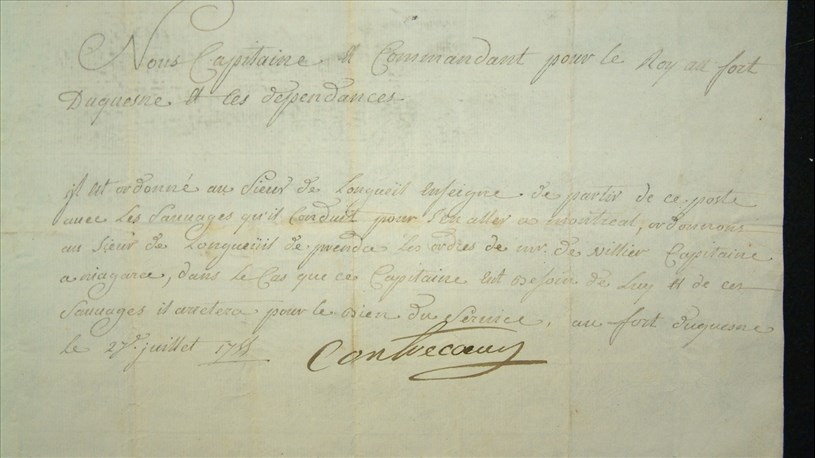 Nous Capitaine et Commandant pour le Roy au fort
Duquesne et ses dependances
Il est ordonné au Sieur de Longueüil enseigne de partir de ce poste
avec les Sauvages qu'il Conduit pour s'en aller a montreal, ordonnons
au Sieur de Longueüil de prendre les ordres de mr. de villier Capitaine
a niagara, dans le Cas que ce Capitaine eut Besoin de Luy et de ces
Sauvages il arretera pour le Bien du Service, au fort duquesne
le 27e. juillet 1755
Contrecoeur